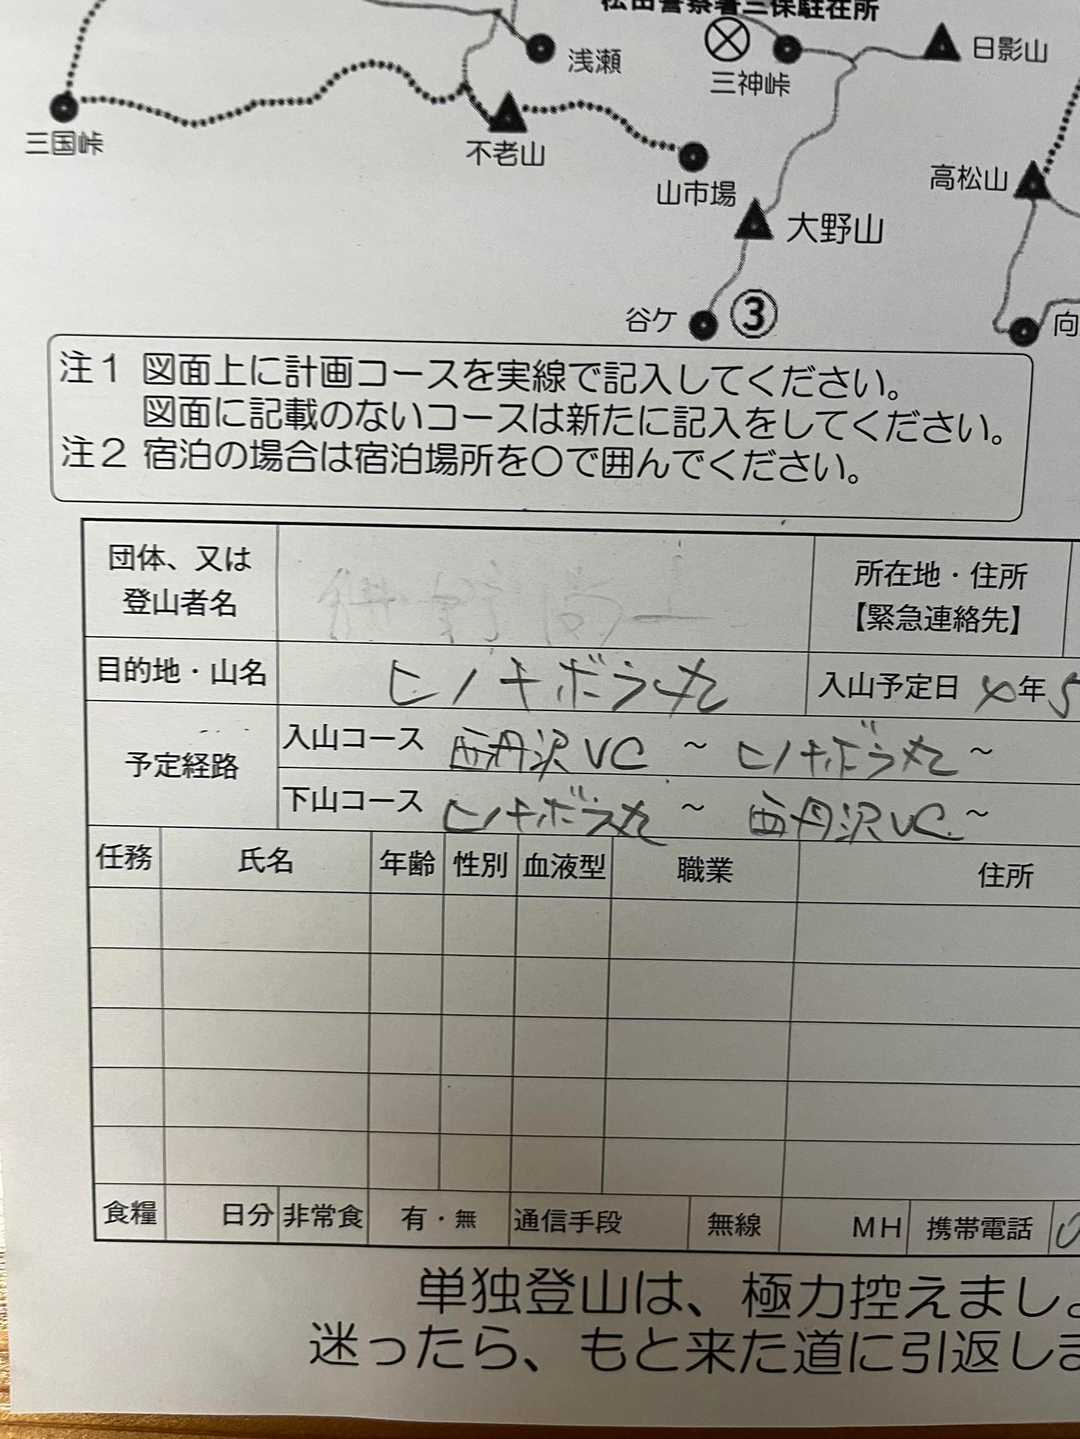 松田警察署三保駐在所
日影山
浅瀬
三神峠
三国峠
不老山
高松山
山市場
大野山
谷ケ ③
向
注1 図面上に計画コースを実線で記入してください。
図面に記載のないコースは新たに記入をしてください。
注2 宿泊の場合は宿泊場所を〇で囲んでください。
団体、又は
登山者名
所在地・住所
【緊急連絡先】
目的地・山名 ヒノキボラ丸 入山予定日 4年5
予定経路
入山コース 西丹沢VC ~ ヒノキボラ丸 ~
下山コース ヒノキボラ丸 ~ 西丹沢VC ~
任務 氏名 年齢 性別 血液型 職業 住所
食糧 日分 非常食 有・無 通信手段 無線 MH 携帯電話 0
単独登山は、極力控えまし
迷ったら、もと来た道に引返しま